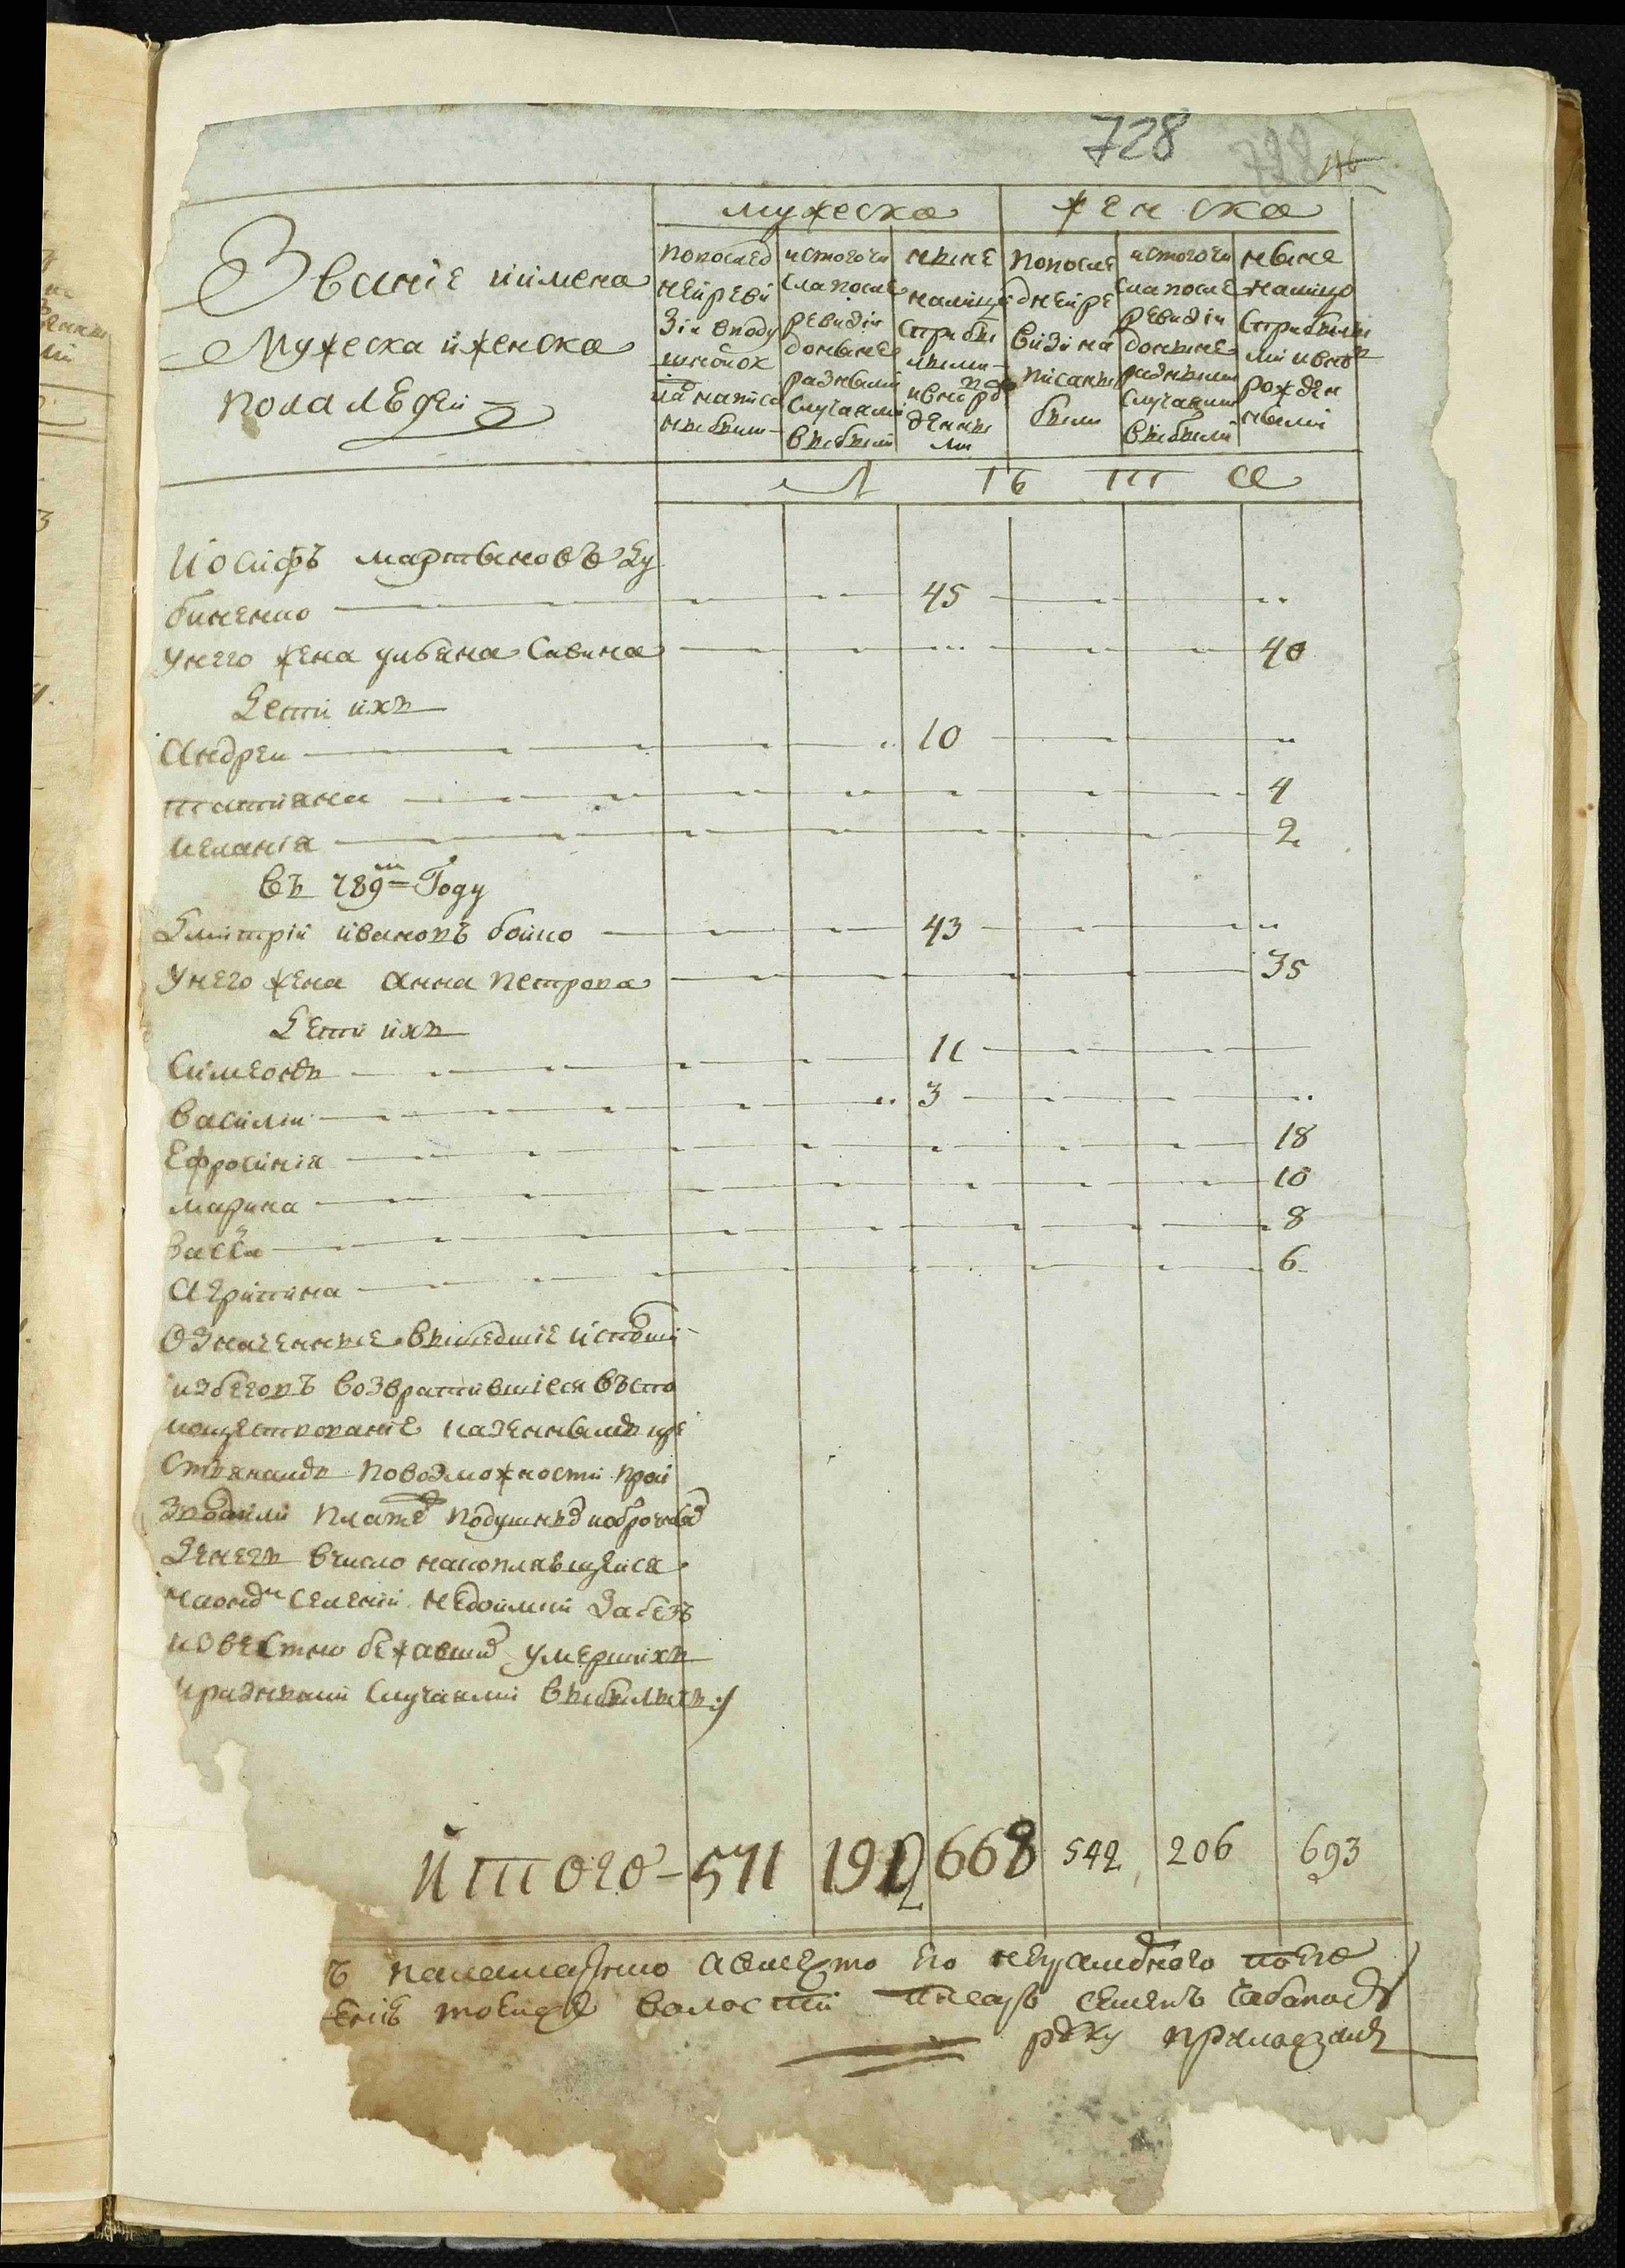 728
728
мужеска
женска
Званїе иимена
Мужеска иженска
пола людей
попослед
ней реви
зїи вподу
шной ок
ладъ написа
ны были
истого чи
сла после
ревизїи
доныне
разными
случаями
выбыли
ныне
налицо
сприбы
лыми
ивновь рож
денны
ми
попосле
дней ре
визїи на
писаны
были
истого чи
сла после
ревизїи
доныне
разными
случаями
выбыли
ныне
налицо
сприбылы
ми ивновь
рожден
ными
Л Ѣ Т А
Иосифъ мартыновъ Ду
биненко 45
Унего жена ульяна Савина 40
Дети ихъ
Андреи 10
татиана 4
меланїя 2
въ 789м Году
Дмитрїй ивановъ бойко 43
Унего жена Анна петрова 35
Дети ихъ
Симеонъ 11
василїи 3
Ефросинїя 18
марина 10
васса 8
Агрипина 6
Означенные вышедшїе
избеговъ возвратившїеся въсто
казеннымъ кре
стьянамъ повозможности прои
зводили платежъ подушныхъ иоброчныхъ
Денегъ вчисло накопляющейся
наономъ селенїи недоимки забезъ
известно бежавшихъ умершихъ
иразными случаями выбылыхъ
Итого 571 192 668 542 206 693
его неграмотного
волости писарь семенъ
руку приложилъ